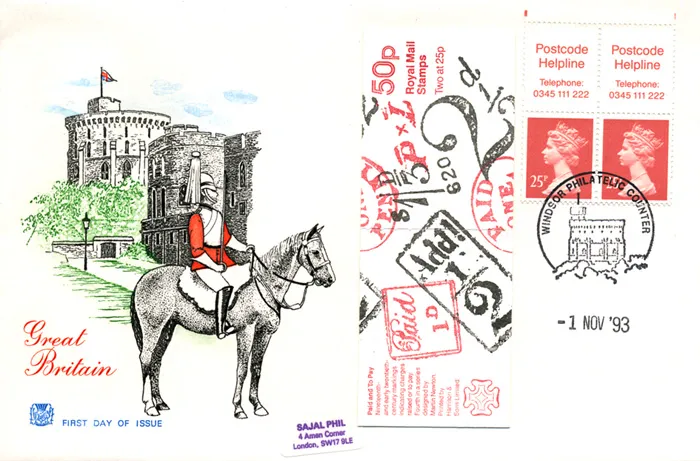 Great
Britain
FIRST DAY OF ISSUE
SAJAL PHIL
4 Amen Corner
London, SW17 9LE
50p
Royal Mail
Stamps
Two at 25p
PAID
ONE
Add!!
Paid
1D
620
Paid and To Pay
Nineteenth-
and early twentieth-
century markings
indicating charges
raised or to pay
Fourth in a series
designed by
Martin Newton
Printed by
Harrison &
Sons Limited
Postcode
Helpline
Telephone:
0345 111 222
Postcode
Helpline
Telephone:
0345 111 222
25P
WINDSOR PHILATELIC COUNTER
-1 NOV '93